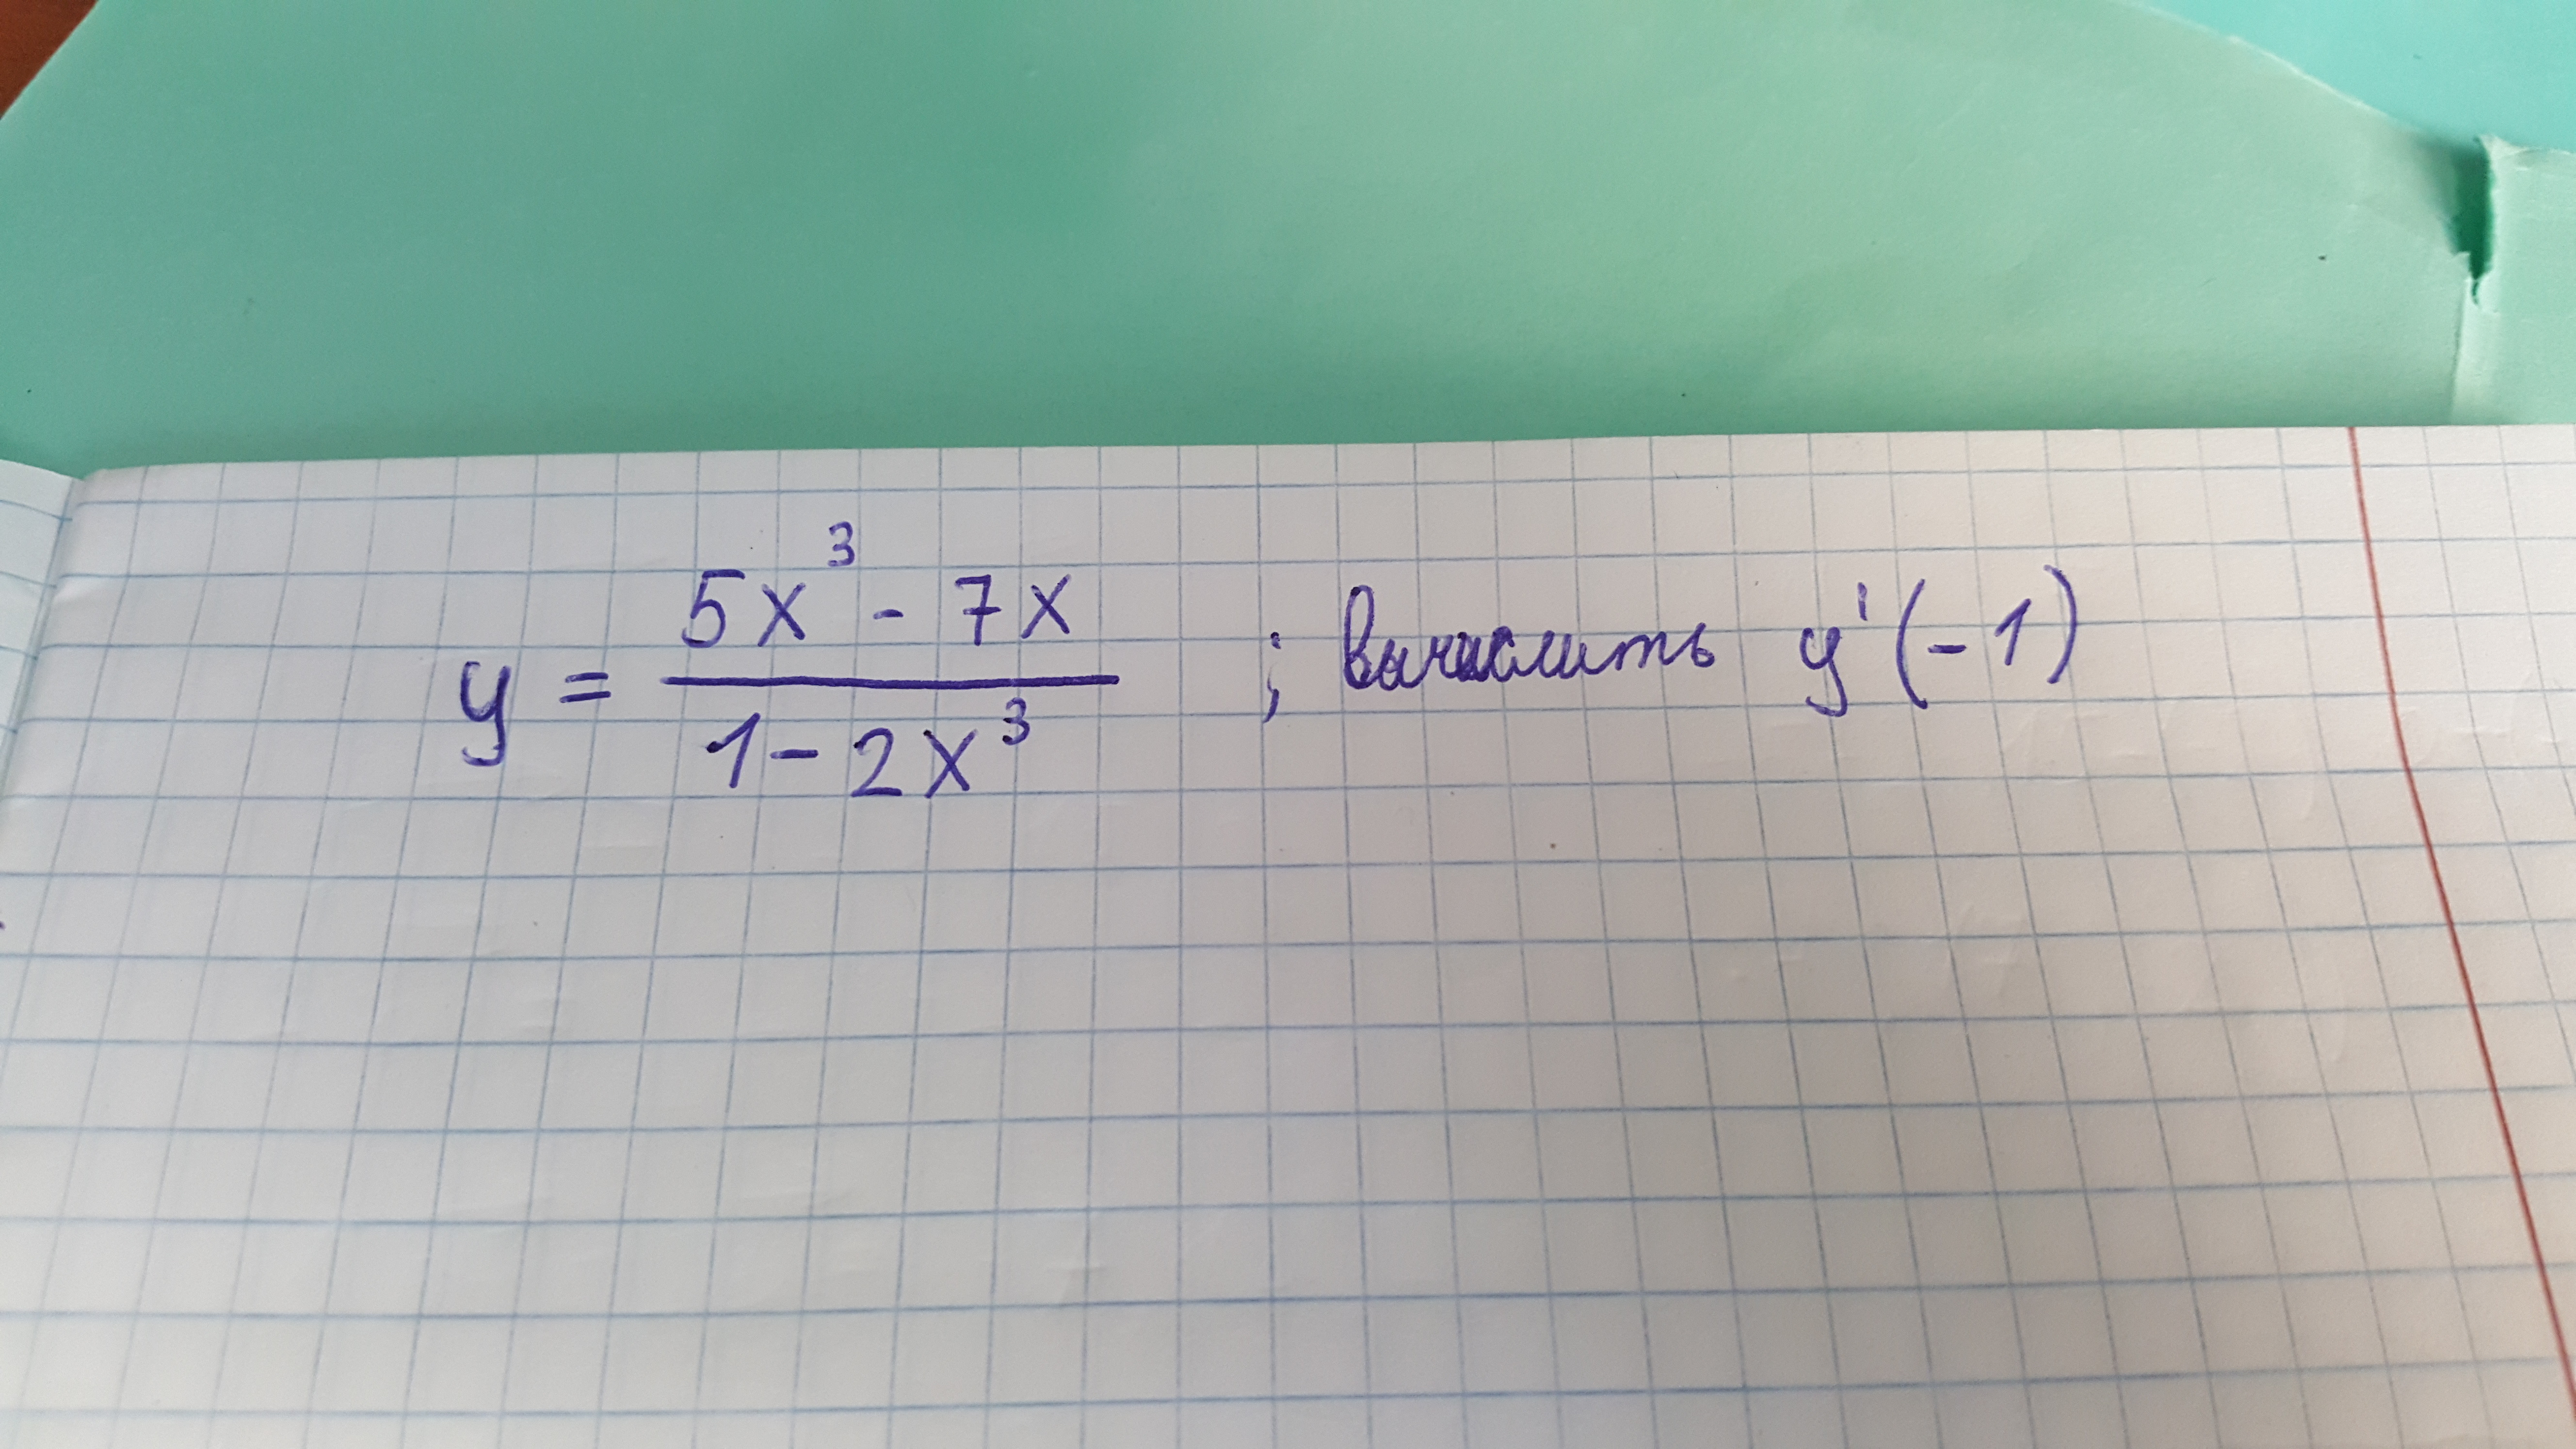 y = \frac{5x^3 - 7x}{1 - 2x^3} ; вычислить y'(-1)